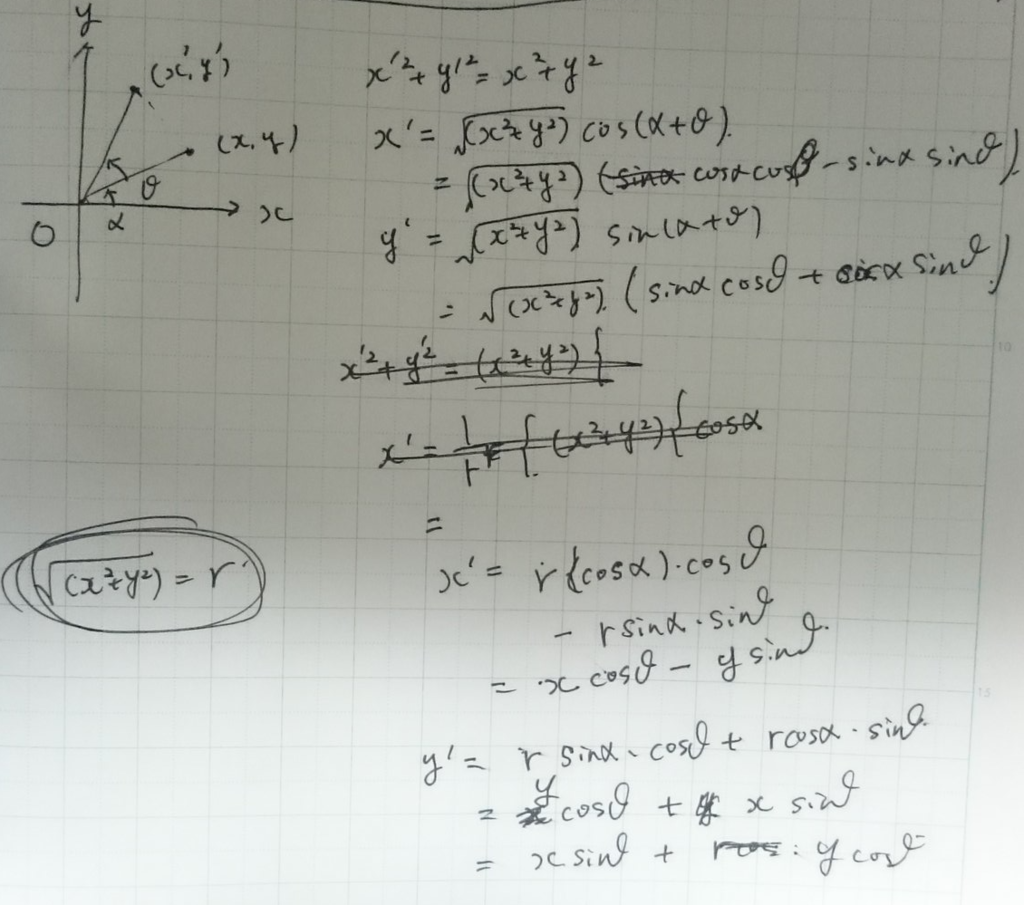 y
(x', y')
(x, y)
θ
α
O
x
x'² + y'² = x² + y²
x' = √(x²+y²) cos(α+θ).
= √(x²+y²) (~~sinα~~ cosα cosθ - sinα sinθ)
y' = √(x²+y²) sin(α+θ)
= √(x²+y²) (sinα cosθ + cosα sinθ)
~~x'² + y'² = (x²+y²) {~~
~~x' = 1/r { (x²+y²) { cosα~~
=
√(x²+y²) = r
x' = r(cosα)·cosθ
- r sinα·sinθ
= x cosθ - y sinθ.
y' = r sinα·cosθ + r cosα·sinθ.
= y cosθ + x sinθ
= x sinθ + y cosθ
10
15